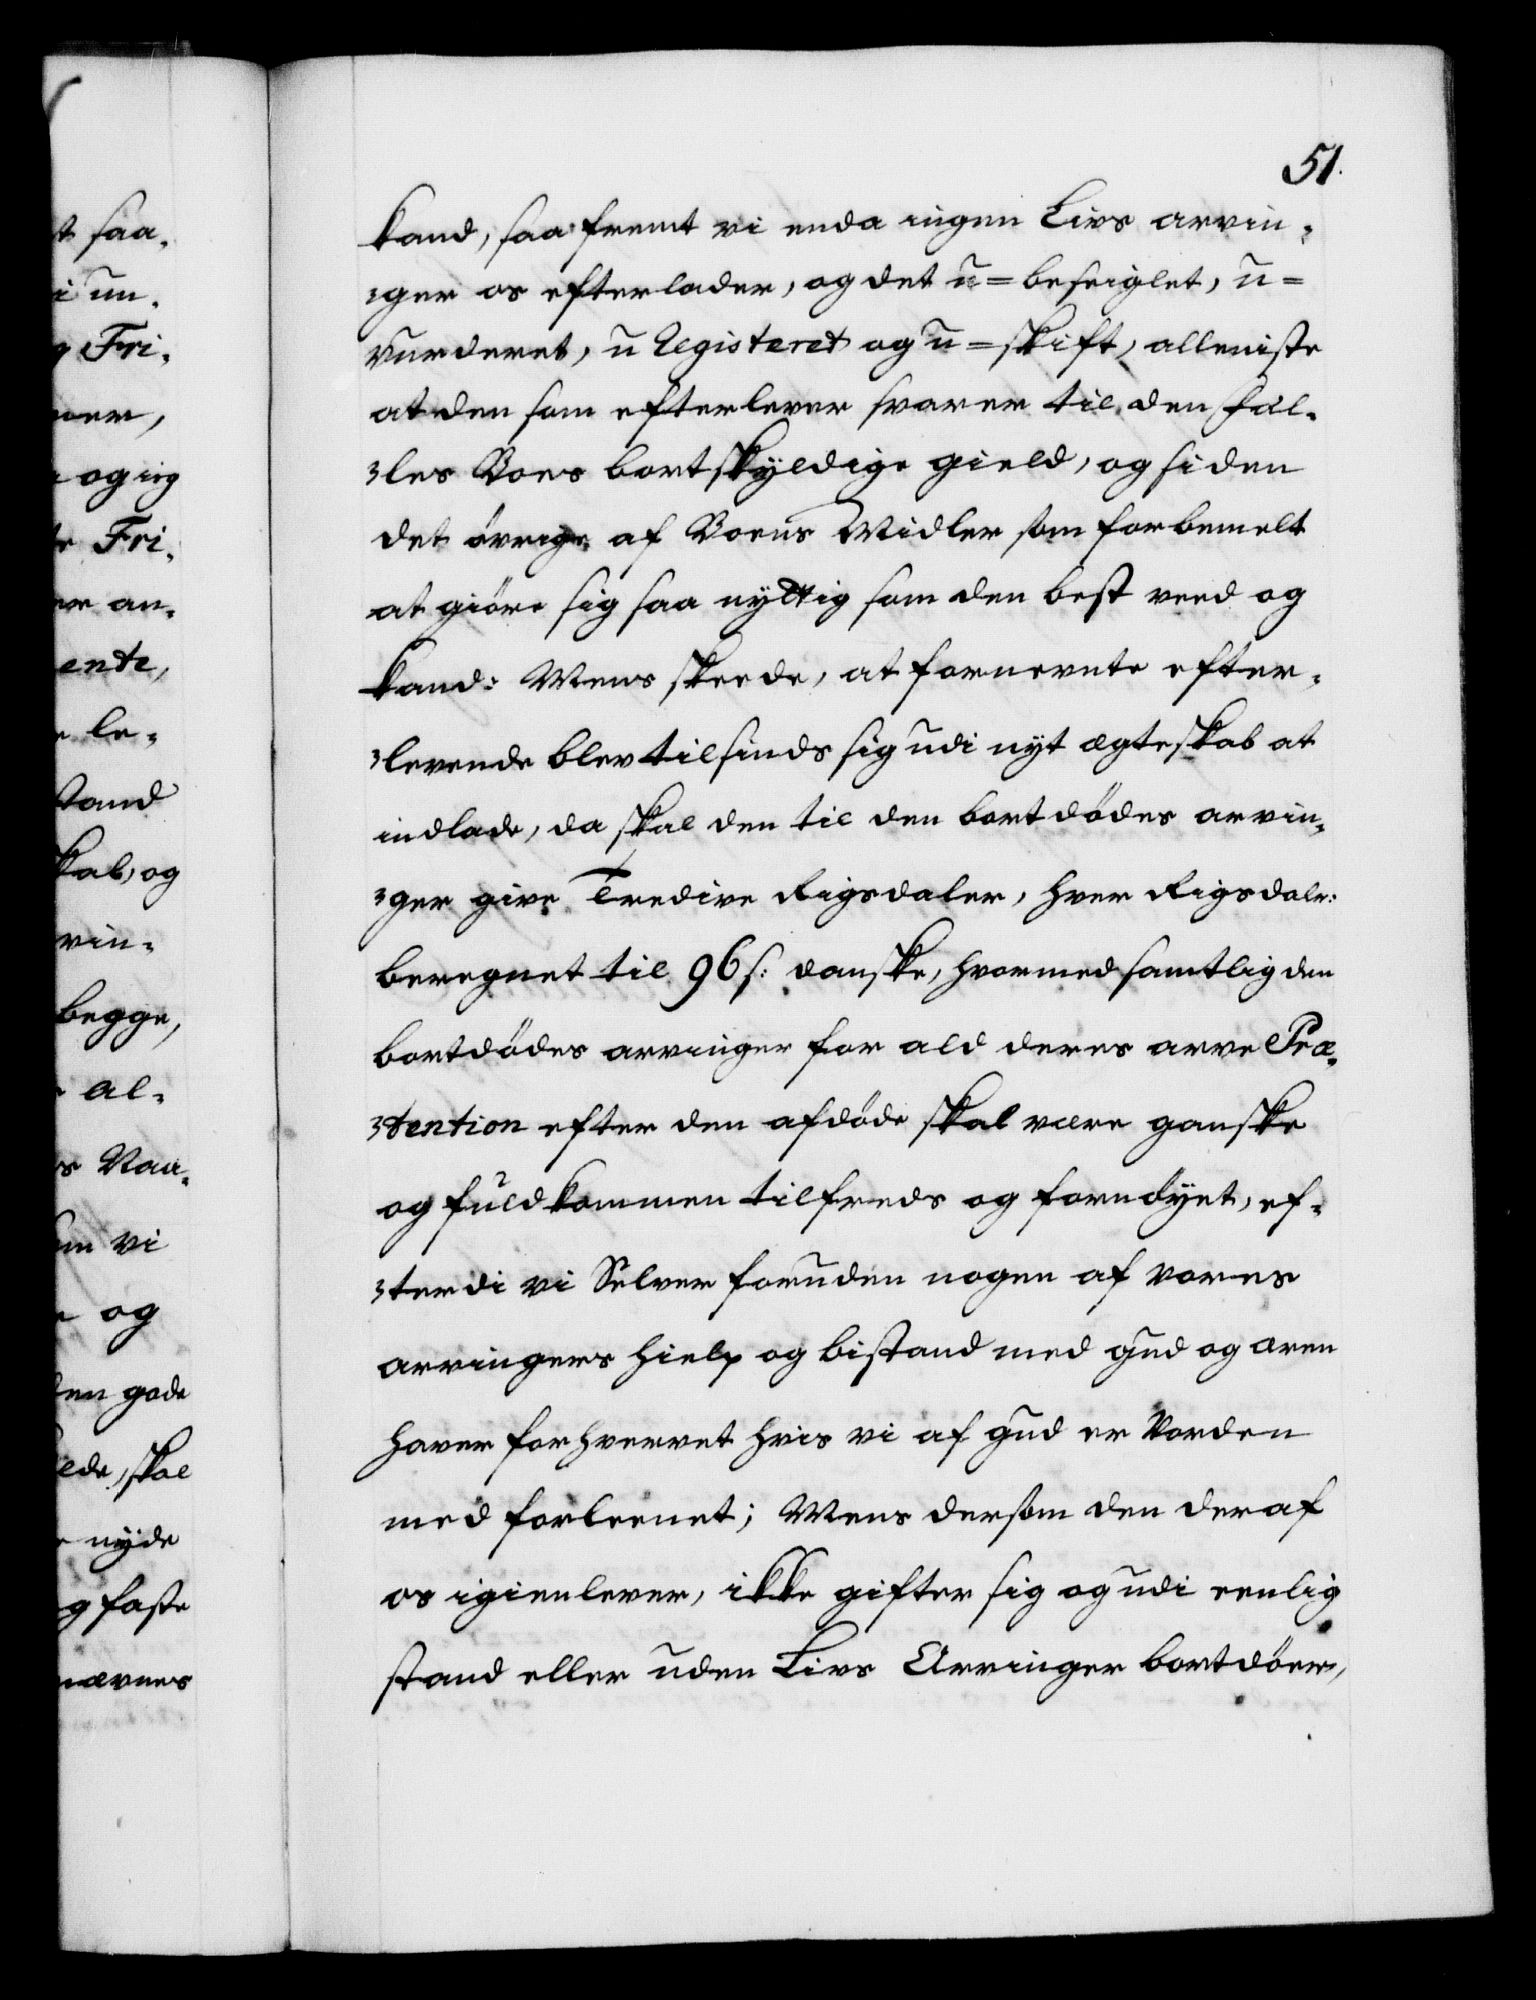 51.
kand, saafremt vi enda ingen Livs arvin-
-ger os efterlader, og det u=beseiglet, u=
vurderet, u Registeret og u=skift, alleniste
at den som efterlever svarer til den fæl-
-les Boes bortskyldige gield, og siden
det övrige af Boens Midler som forbemelt
at giöre sig saa nyttig som den best veed og
kand: Mens skeede, at fornevnte efter-
-levende blev tilsinds sig udi nÿt ægteskab at
indlade, da skal den til den bortdödes arvin-
-ger give Tredive Rigsdaler, hver Rigsdalr:
beregnet til 96 s: danske, hvormed samtlig den
bortdödes arvinger for ald deres arve Præ-
-tention efter den afdöde skal være ganske
og fuldkommen tilfreds og fornöÿet, ef-
-terdi vi Selver foruden nogen af vores
arvingers hielp og bistand med gud og æren
haver forhvervet hvis vi af gud er Vorden
med forleenet; Mens dersom den der af
os igienlever, ikke gifter sig og udi eenlig
stand eller uden Livs Arvinger bortdöer,
t saa-
i un-
g Fri-
ner,
og ieg
e Fri-
er an-
ente,
le-
tand
kab, og
rvin-
begge,
al-
s Naa-
om vi
og
den gode
lde, skal
nÿde
g faste
nævnes